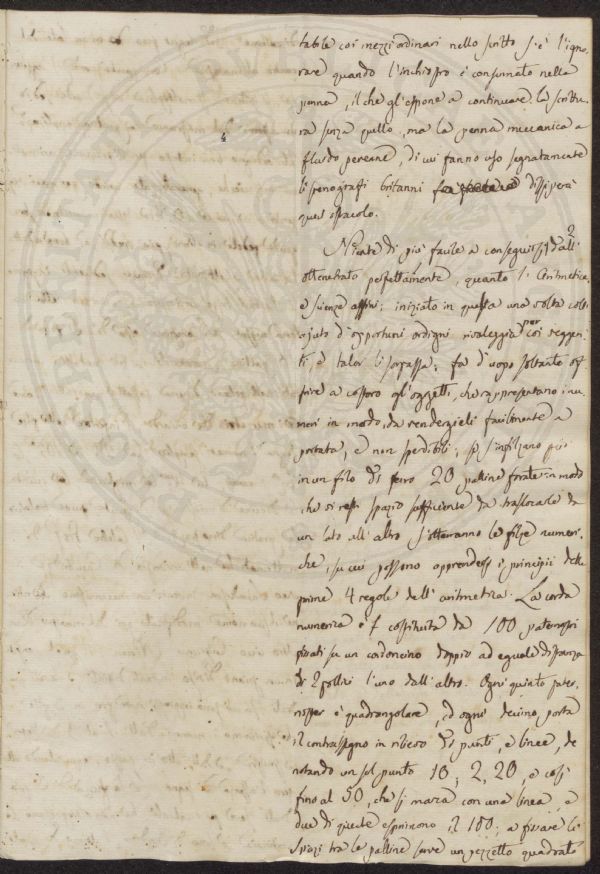 4
table coi mezzi ordinari nello scritto s'è l'igno-
rare quando l'inchiostro è consumato nella
penna, il che gl'espone a continuare la scrittu-
ra senza quello, ma la penna meccanica a
fluido perenne, di cui fanno uso segnatamente
li stenografi britanni dissiperà
quest'ostacolo.
Niente di più facile a conseguirsi dall'
ottenebrato perfettamente, quanto l'Aritmetica,
e scienze affini: iniziato in questa una volta coll'
ajuto d'opportuni ordigni rivaleggia coi veggen-
ti, e talor li sorpassa; fa d'uopo soltanto of-
frire a costoro gl'oggetti, che rappresentano i nu-
meri in modo, da renderglieli facilmente a
portata, e non sperdibili; se s'infilzano più
in un filo di ferro 20 palline forate in modo
che vi resti spazio sufficiente da traslocarle da
un lato all'altro s'otterranno le filze numeri-
che, su cui possono apprendersi i principii delle
prime 4 regole dell'aritmetica. La corda
numerica è costituita da 100 paternostri
fissati su un cordoncino doppio ad eguale distanza
di 2 pollici l'uno dall'altro. Ogni quinto pater-
noster è quadrangolare, ed ogni decimo porta
il contrassegno in rilievo di punti, e linee, de-
notando un sol punto 10, 2, 20, e così
fino al 50, che si marca con una linea, e
due di queste esprimono il 100; a fissare li
spazi tra le palline serve un pezzetto quadrato